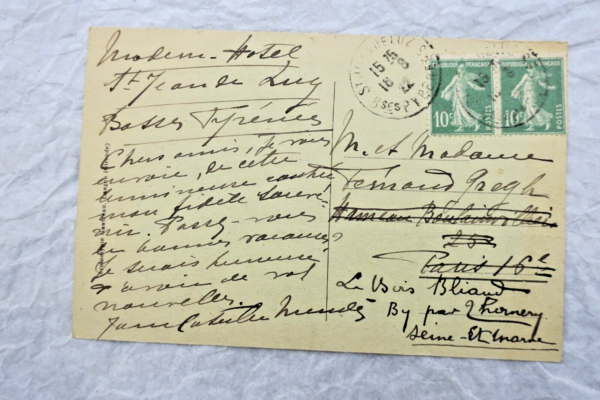 Modern-Hotel
St Jean de Luz
Basses Pyrénées
Chers amis, Je vous
envoie, de cette
lumineuse contrée
mon fidèle souve-
nir. Passez-vous
de bonnes vacances?
Je serais heureuse
d'avoir de vos
nouvelles.
Jane Catulle Mendès
ST JEAN DE LUZ
15 15
16 8
BSES PYRENEES
REPUBLIQUE FRANÇAISE
10c POSTES
10c POSTES
M. et Madame
Fernand Gregh
Hameau Boulainvilliers
25
Paris 16e
Le Bois Bliaud
By par Thomery
Seine-Et-Marne